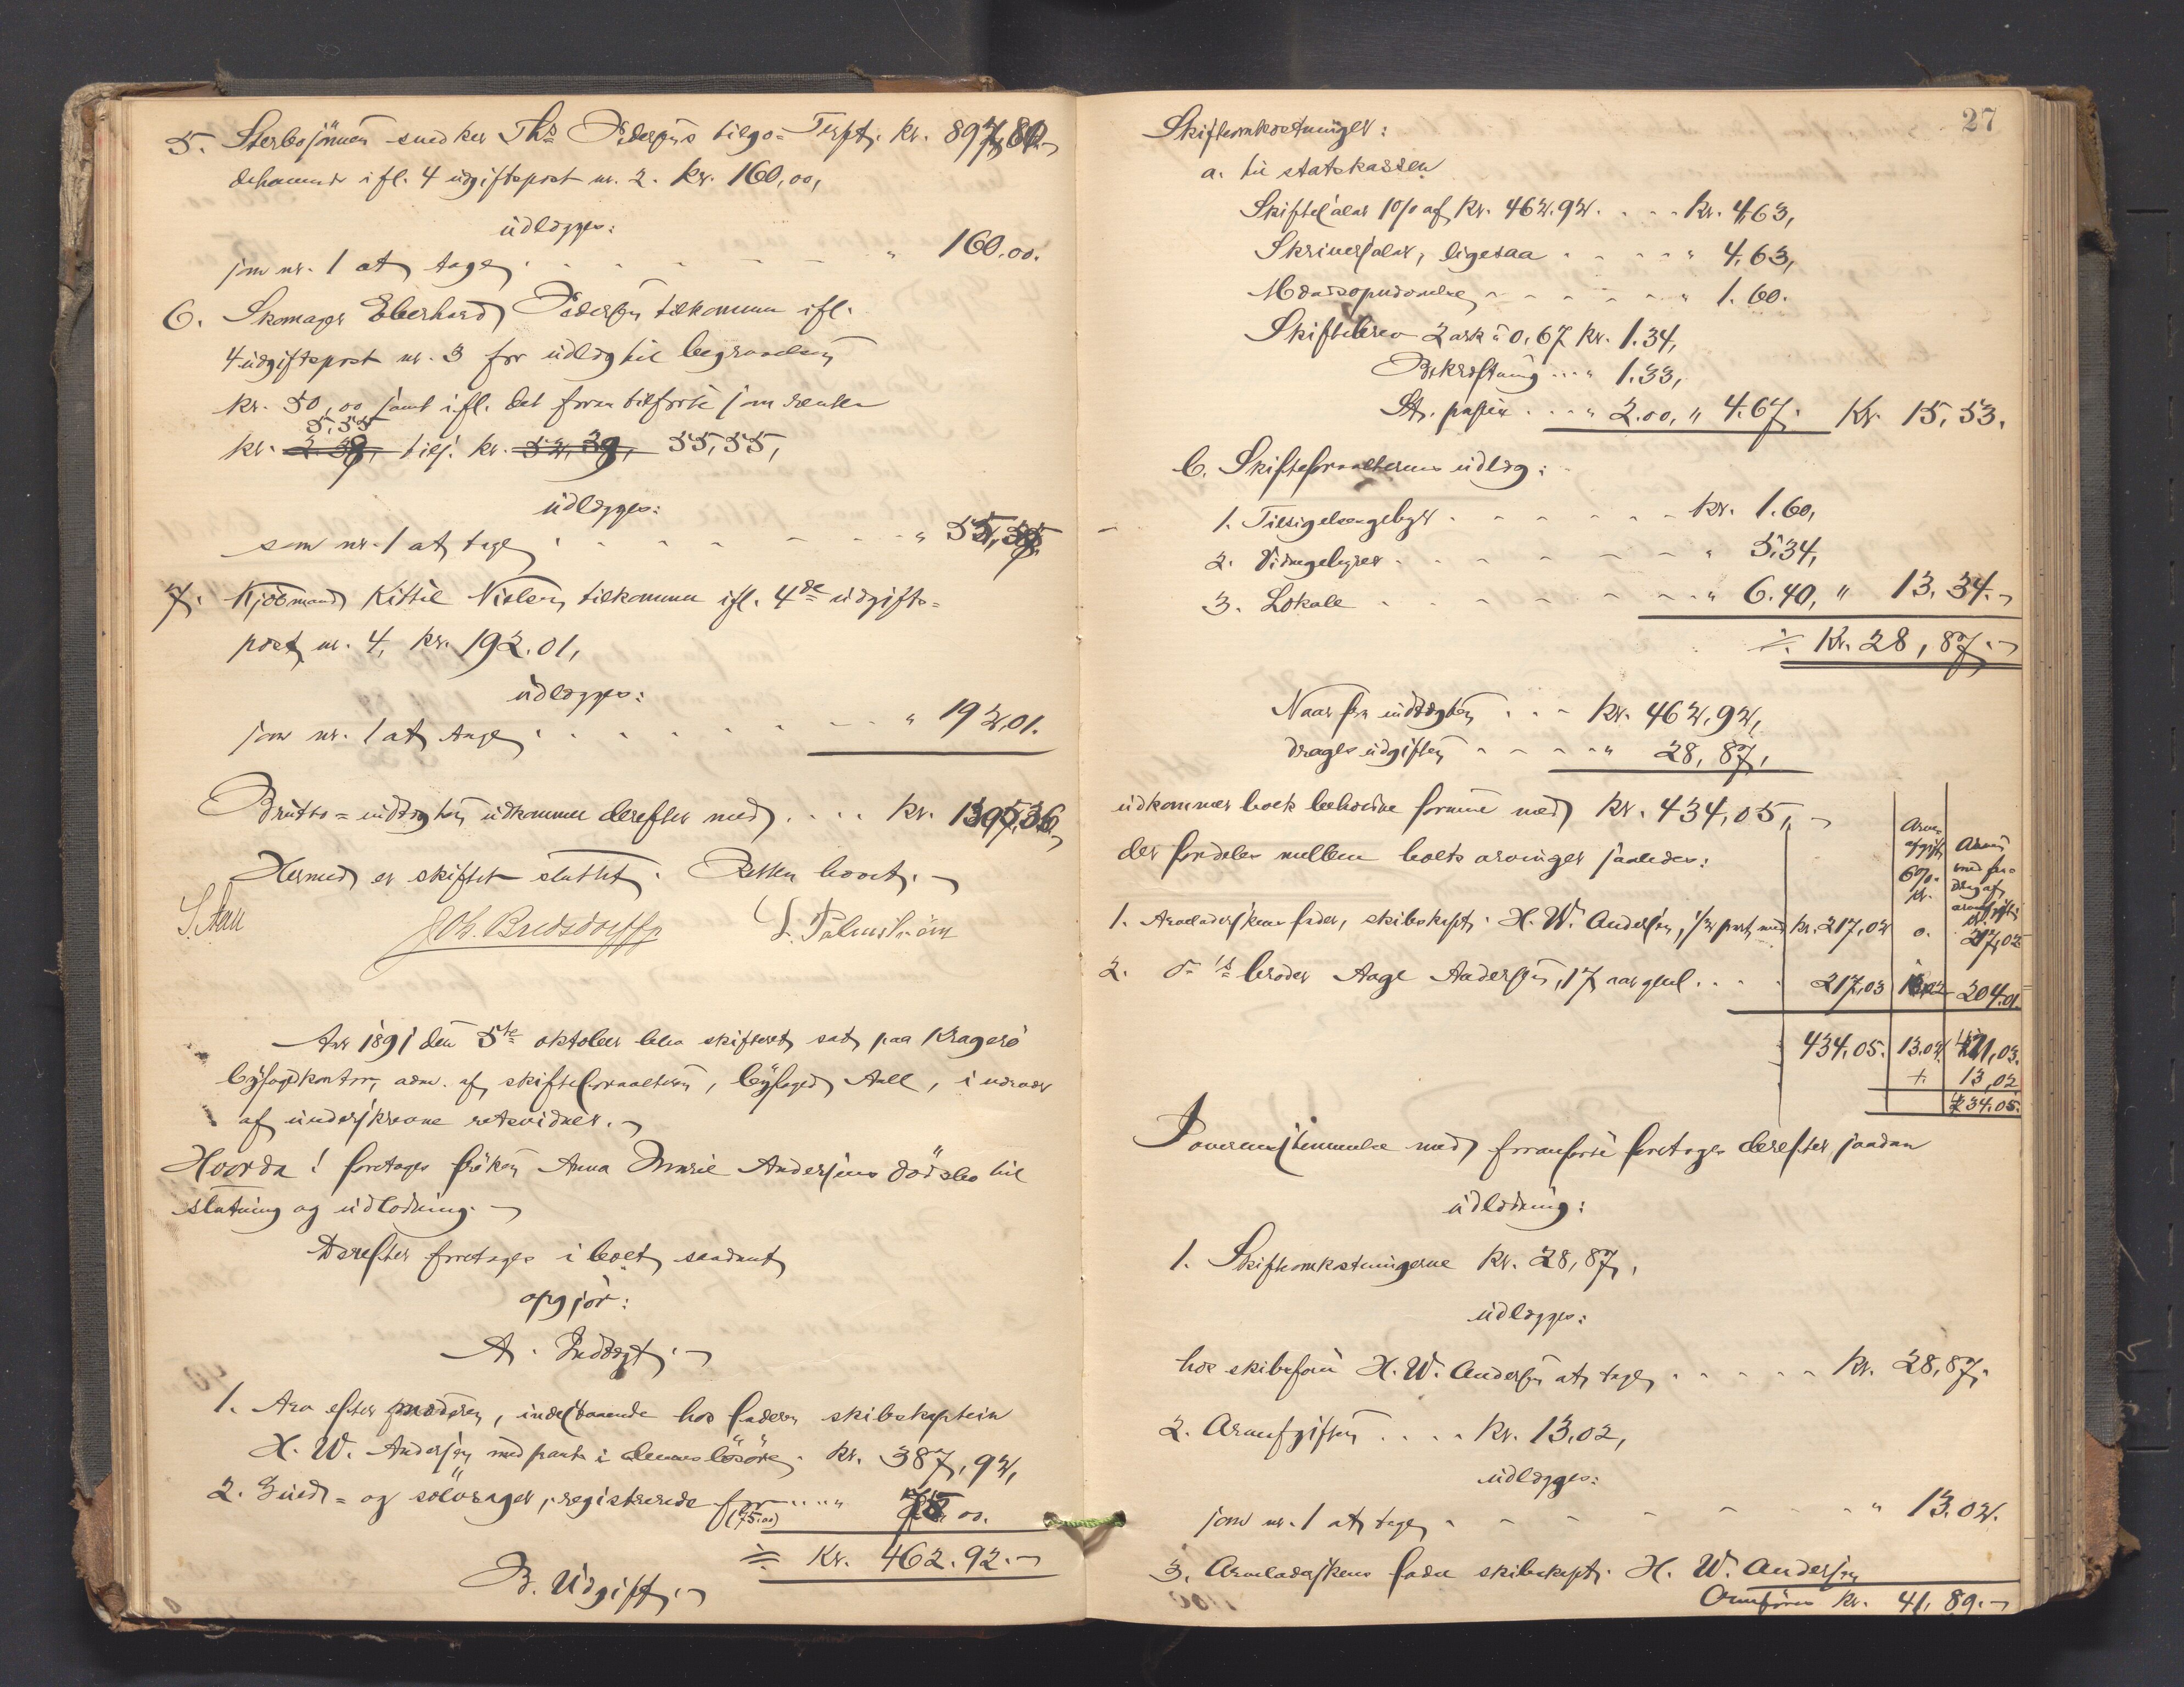 5. Sterbosjömen snedker Ths Pedersens tilgo- Trspt. kr. 897,80
i fl. 4 udgiftspost nr. 2. kr. 160,00,
udlægges:
som nr. 1 at tage . . . . . . " 160.00.
6. Skomager Eberhard Pedersen tilkommer ifl.
4 udgiftspost nr. 3 for udlæg til begravelsen
kr. 50,00 samt ifl. det foran tilförte som renter
5,55
kr. 2.39, tils. kr. 52,39, 55,55,
udlægges:
som nr. 1 at tage . . . . . . " 55,55
7. Kjöbmand Kittil Nielsen tilkommer ifl. 4de udgifts-
post nr. 4, kr. 192.01,
udlægges:
som nr. 1 at tage . . . . . . " 192,01.
Brutto-indtægten udkommer derefter med . . . . kr. 1305,36
Hermed er skiftet sluttet. Retten hævet.
S. Aall Joh. Bredsdorff L. Palmström
Aar 1891 den 5te oktober blev skifteret sat paa Kragerö
byfogdkontor, adm. af skifteforvalteren, byfoged Aall, i nærvær
af underskrevne retsvidner.
Hvorda! foretages fröken Anna Marie Andersens dödsbo til
slutning og udlodning.
Derefter foretages i boet saadant
opgjör:
A. Indtægt.
1. Arv efter moderen, indestaaende hos faderen skibskaptein
H. W. Andersen med pant i dennes lösöre. kr. 387,92,
2. Guld- og sölvsager, registrerede for . . . . " 75 00.
(75.00)
÷ Kr. 462.92.
B. Udgift.
27
Skifteomkostninger:
a. til statskassen
Skiftesalær 1 0/0 af kr. 462.92. . . . kr. 4,63,
Skriversalær, ligesaa . . . . " 4.63,
. . . . . . " 1.60.
Skiftebrev 2 ark à 0,67 kr. 1.34,
Bekræftning . . . " 1.33,
St. papir . . . " 2.00, " 4.67. Kr. 15,53.
b. Skifteforvalterens udlæg:
1. Tilsigelsesgebyr . . . . . . kr. 1.60,
2. Vidnegebyrer . . . . . . " 5,34,
3. Lokale . . . . . . " 6.40, " 13,34.
÷ Kr. 28,87.
Naar fra indtægten . . . kr. 462,92,
drages udgiften . . . . " 28,87,
udkommer boets beholdne formue med kr. 434,05,
der fordeles mellem boets arvinger saaledes:
Arve-
afgift
6%.
kr.
Arven
med fra-
drag af
arveafgift
kr.
1. Arveladerskens fader, skibskapt. H. W. Andersen, 1/2 part med kr. 217,02 0. 217,02
2. do 's broder Aage Andersen, 17 aar gml. . . . 217,03 13,02 204.01.
434,05. 13.02. 421,03.
+ 13,02
434,05.
I overensstemmelse med foranförte foretages derefter saadan
udlodning:
1. Skifteomkostningerne kr. 28,87,
udlægges:
hos skibsförer H. W. Andersen at tage . . . . . kr. 28,87,
2. Arveafgiften . . . . kr. 13,02,
udlægges:
som nr. 1 at tage . . . . . . " 13.02.
3. Arveladerskens fader skibskapt. H. W. Andersen
Overföres kr. 41,89.